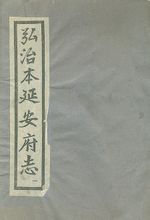 弘治本延安府志
一